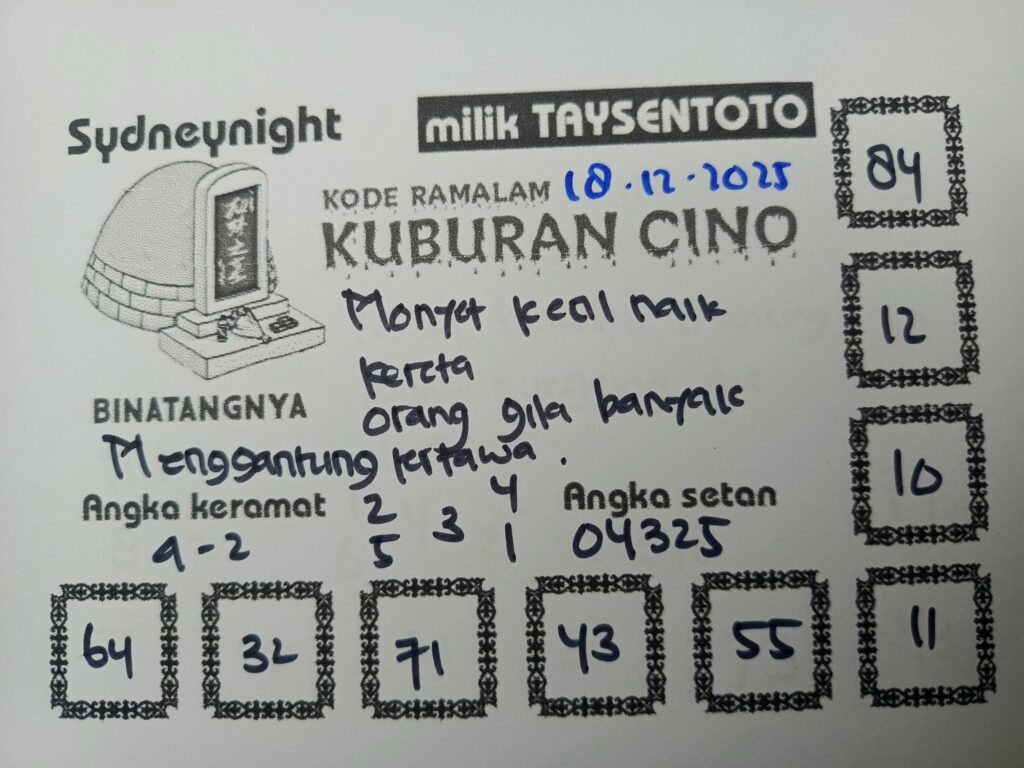 Sydneynight
milik TAYSENTOTO
KODE RAMALAM 18.12.2025
KUBURAN CINO
Monyet kecil naik
kereta
BINATANGNYA
orang gila banyak
Menggantung tertawa.
Angka keramat
9-2
2 4
3
5 1
Angka setan
04325
84
12
10
64 32 71 43 55 11